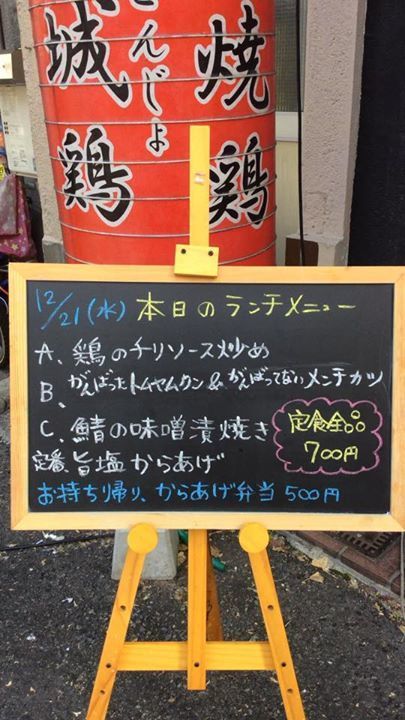 城鶏
さんじょ
焼鶏
12/21(水) 本日のランチメニュー
A、鶏のチリソース炒め
B、がんばったトムヤムクン&がんばってないメンチカツ
C、鯖の味噌漬焼き
定番、旨塩からあげ
定食全品
700円
お持ち帰り、からあげ弁当 500円